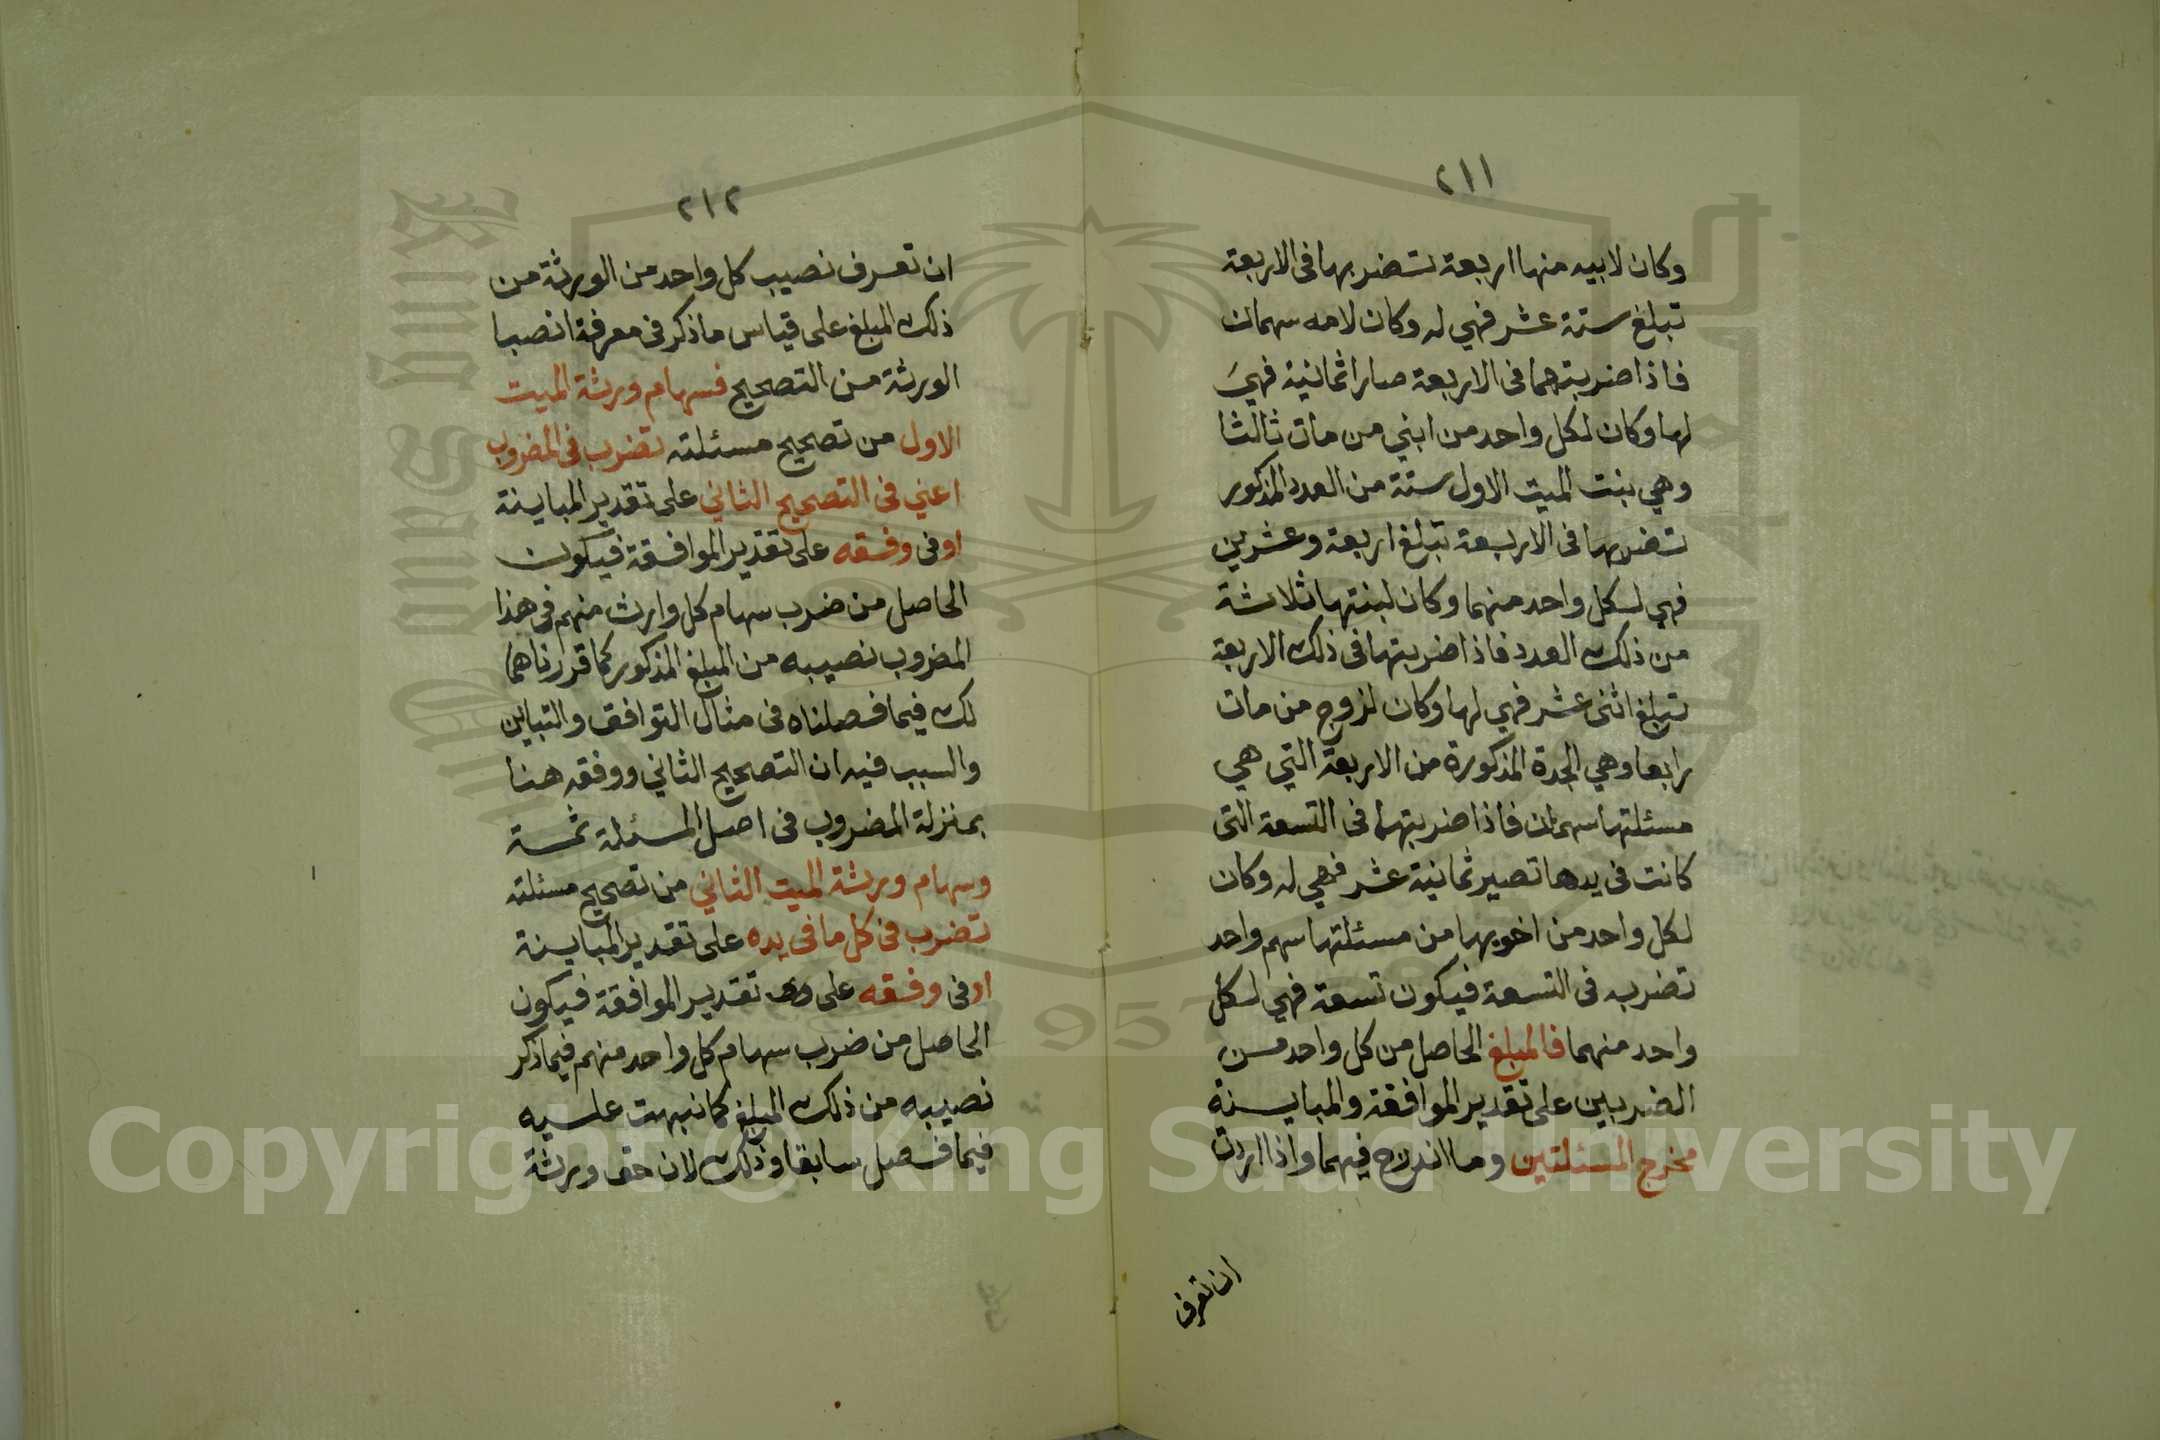 ٢١١
وكان لابيه منها اربعة تضربها فى الاربعة
تبلغ ستة عشر فهي له وكان لامه سهمان
فاذا ضربتهما فى الاربعة صارا ثمانية فهيَ
لها وكان لكل واحد من ابني من مات ثالثا
وهي بنت الميت الاول ستة من العدد المذكور
تضربها فى الاربعة تبلغ اربعة وعشرين
فهي لكل واحد منهما وكان لبنتها ثلاثة
من ذلك العدد فاذا ضربتها فى ذلك الاربعة
تبلغ اثنى عشر فهي لها وكان لزوج من مات
رابعا وهي الجدة المذكورة من الاربعة التي هي
مسئلتها سهمان فاذا ضربتهما فى التسعة التى
كانت فى يدها تصير ثمانية عشر فهي له وكان
لكل واحد من اخويها من مسئلتها سهم واحد
تضربه فى التسعة فيكون تسعة فهي لكل
واحد منهما فالمبلغ الحاصل من كل واحد مـن
الضربين على تقدير الموافقة والمباينة
مخرج المسئلتين وما اندرج فيهما واذا اردت
ان تعرف
٢١٢
ان تعرف نصيب كل واحد من الورثة من
ذلك المبلغ على قياس ما ذكر فى معرفة انصبا
الورثة من التصحيح فسهام ورثة الميت
الاول من تصحيح مسئلته تضرب فى المضروب
اعني فى التصحيح الثاني على تقدير المباينة
او فى وفقه على تقدير الموافقة فيكون
الحاصل من ضرب سهام كل وارث منهم فى هذا
المضروب نصيبه من المبلغ المذكور كما قررناهما
لك فيما فصلناه فى مثال التوافق والتباين
والسبب فيه ان التصحيح الثاني ووفقه هنا
بمنزلة المضروب فى اصل المسئلة ثمـة
وسهام ورثة الميت الثاني من تصحيح مسئلته
تضرب فى كل ما فى يده على تقدير المباينة
او فى وفقه على تقدير الموافقة فيكون
الحاصل من ضرب سهام كل واحد منهم فيما ذكر
نصيبه من ذلك المبلغ كما نبهت عليه
فيما فصل سابقا وذلك لان حق ورثة
1957
Copyright © King Saud University